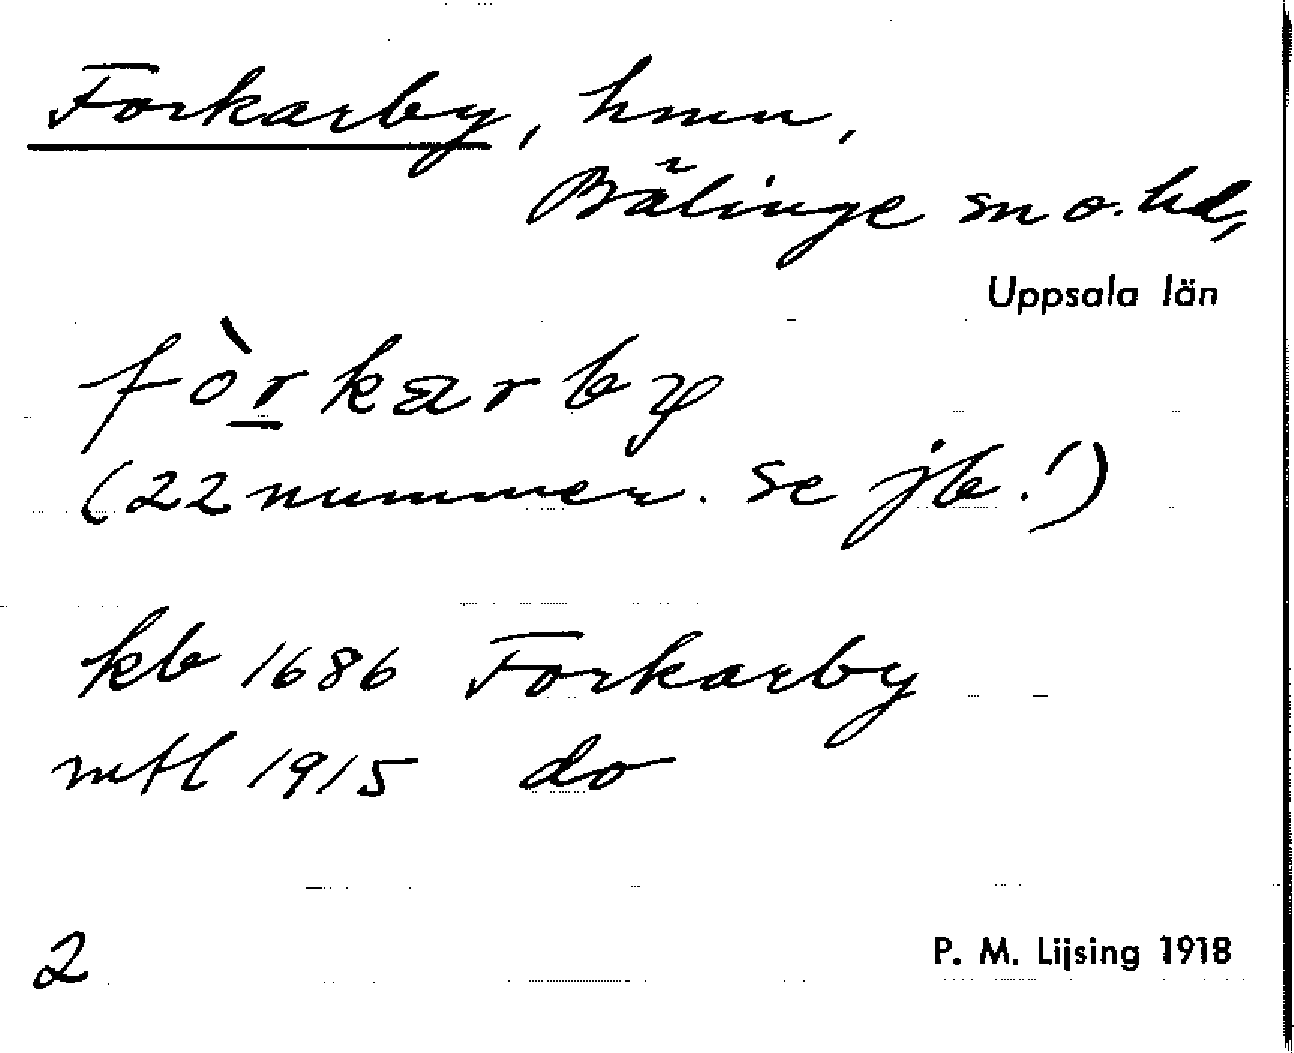 Forkarby, hmn,
Bälinge sn o. hd,
Uppsala län
fòrkarby
(22 nummer. se jb!)
kb 1686 Forkarby
mtl 1915 do
2
P. M. Lijsing 1918